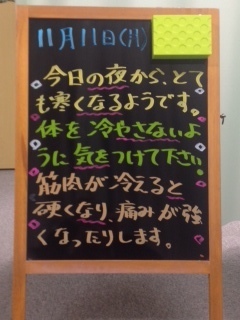 11月11日(月)
今日の夜から、とて
も寒くなるようです。
体を冷やさないよ
うに気をつけて下さい!
筋肉が冷えると
硬くなり、痛みが強
くなったりします。